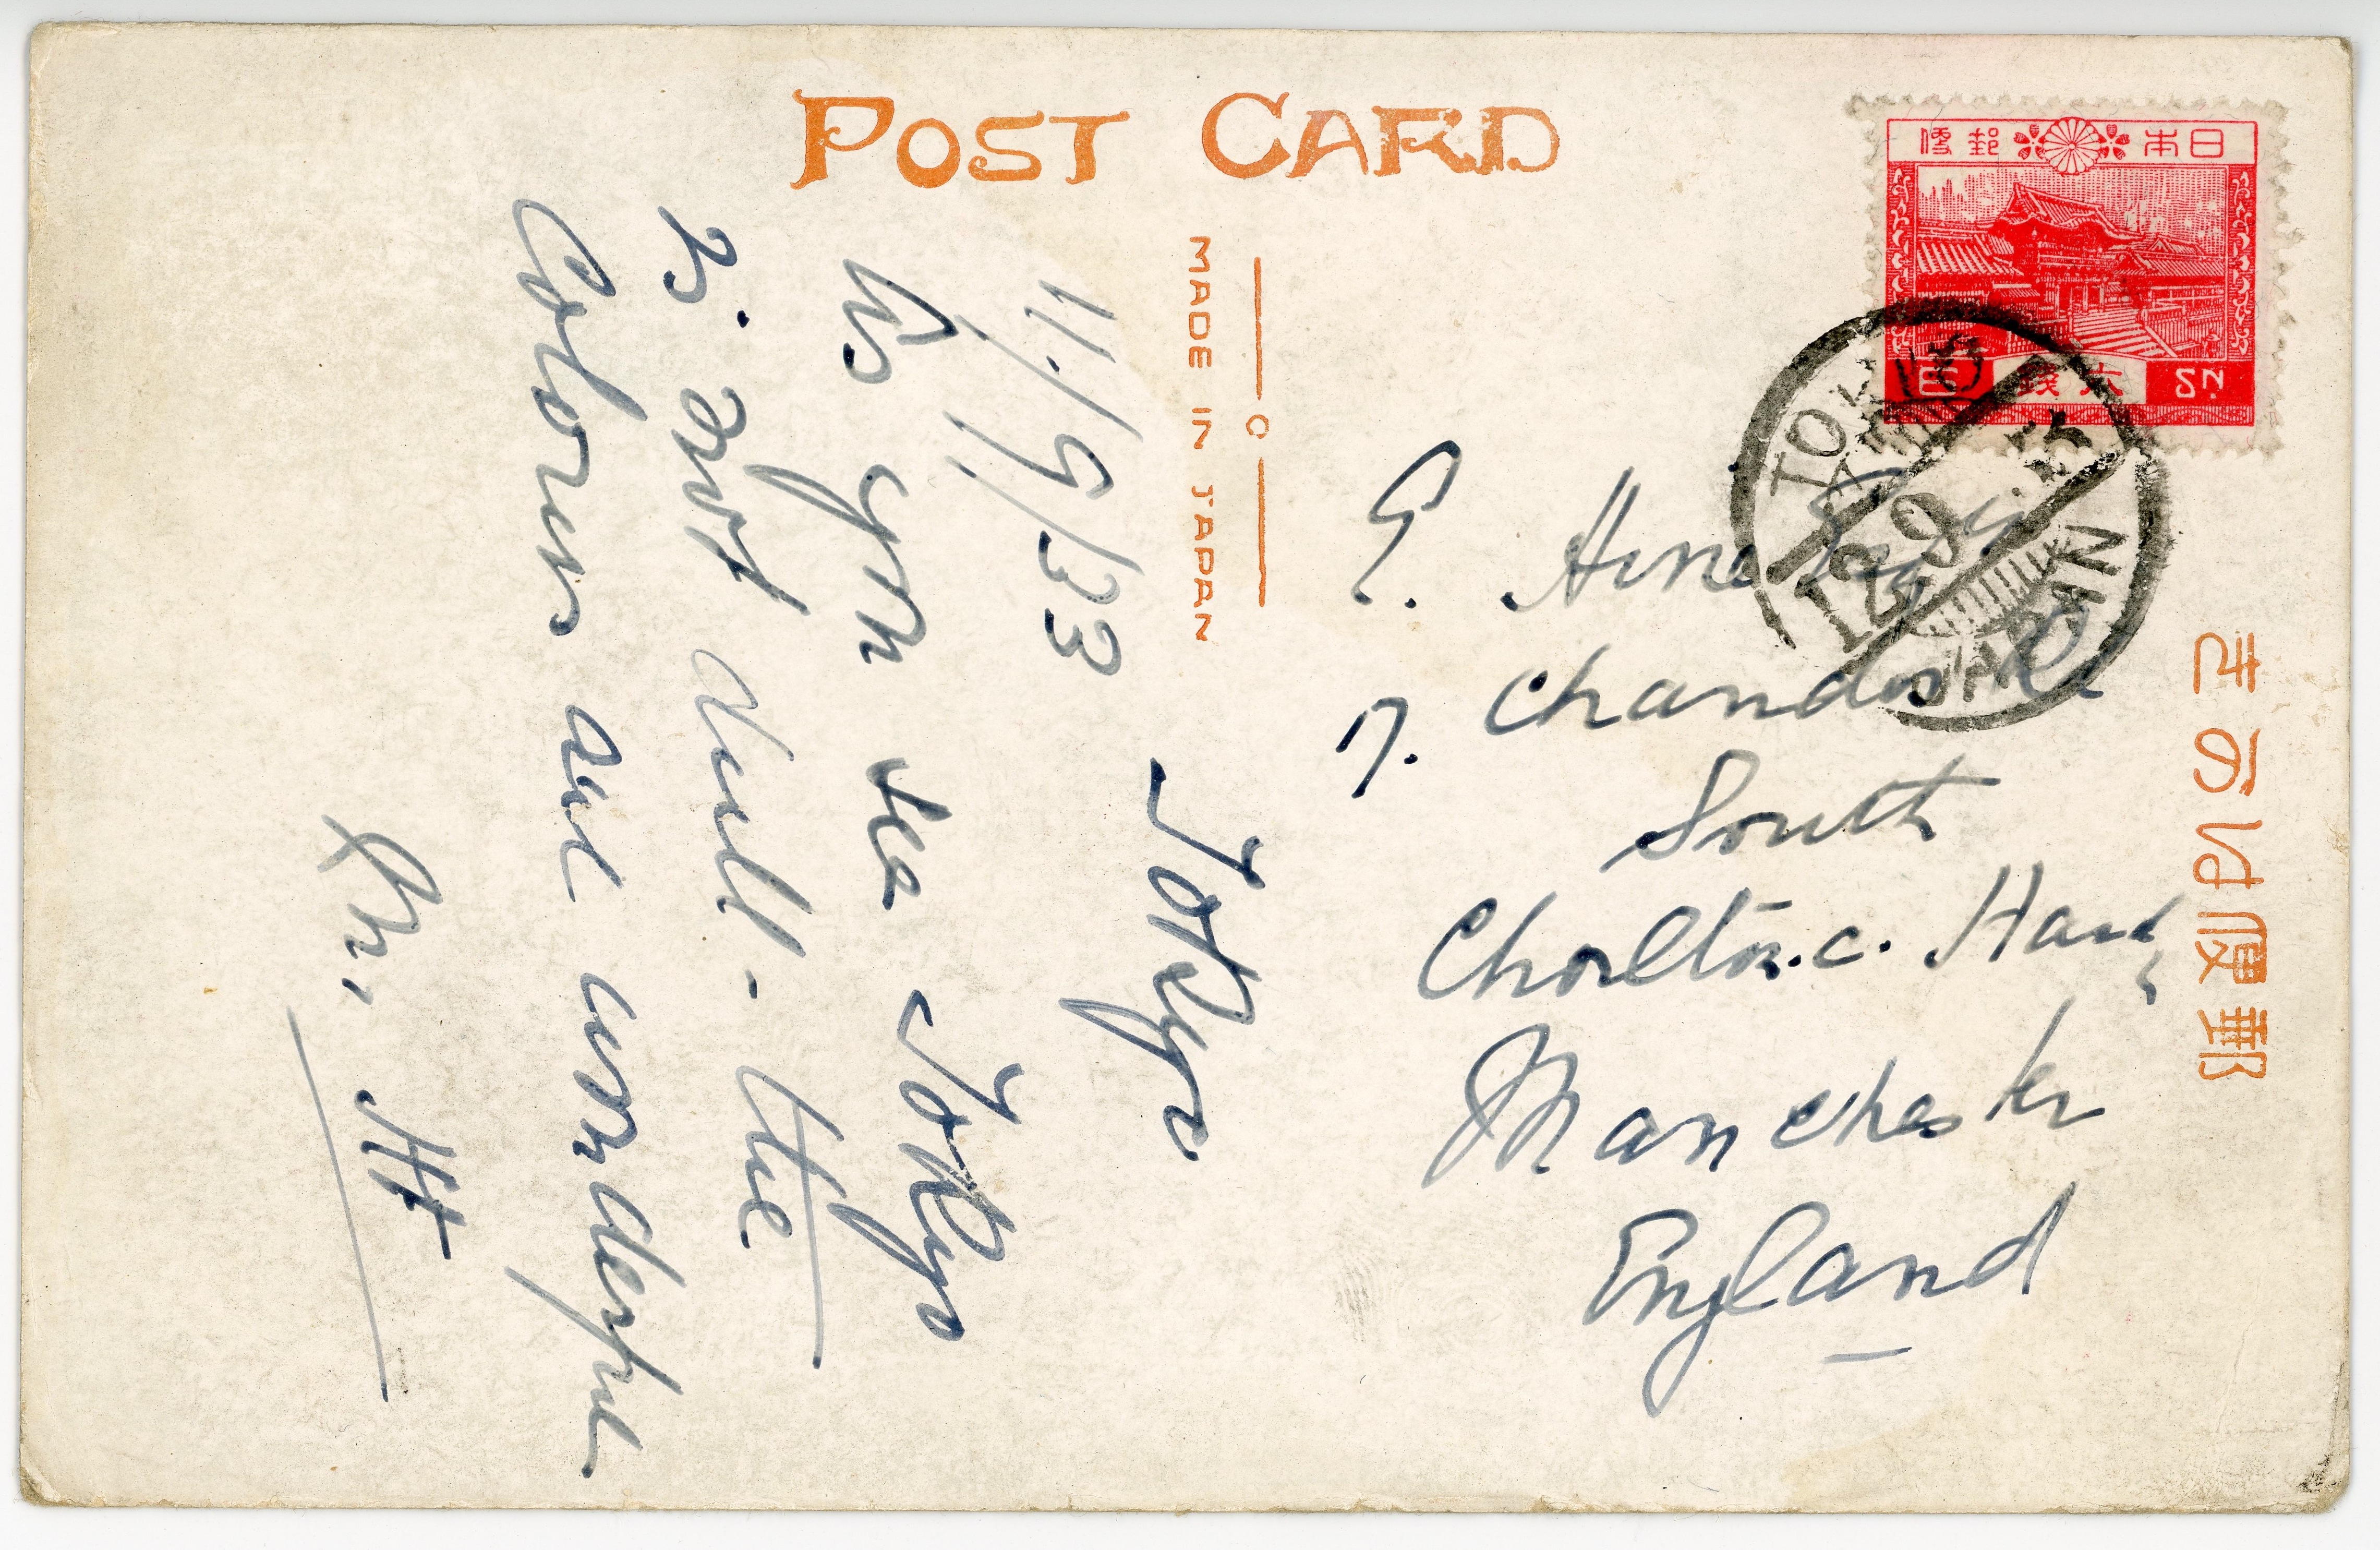 POST CARD
MADE IN JAPAN
日本郵便
六銭
SN.
JAPAN
郵便はかき
Tokyo
11/9/33
As you see Tokyo
is not dull - the
Colours are wonderful
E. Hine Esq.
7. Chandos Rd
South
Chorlton.c. Hardy
Manchester
England